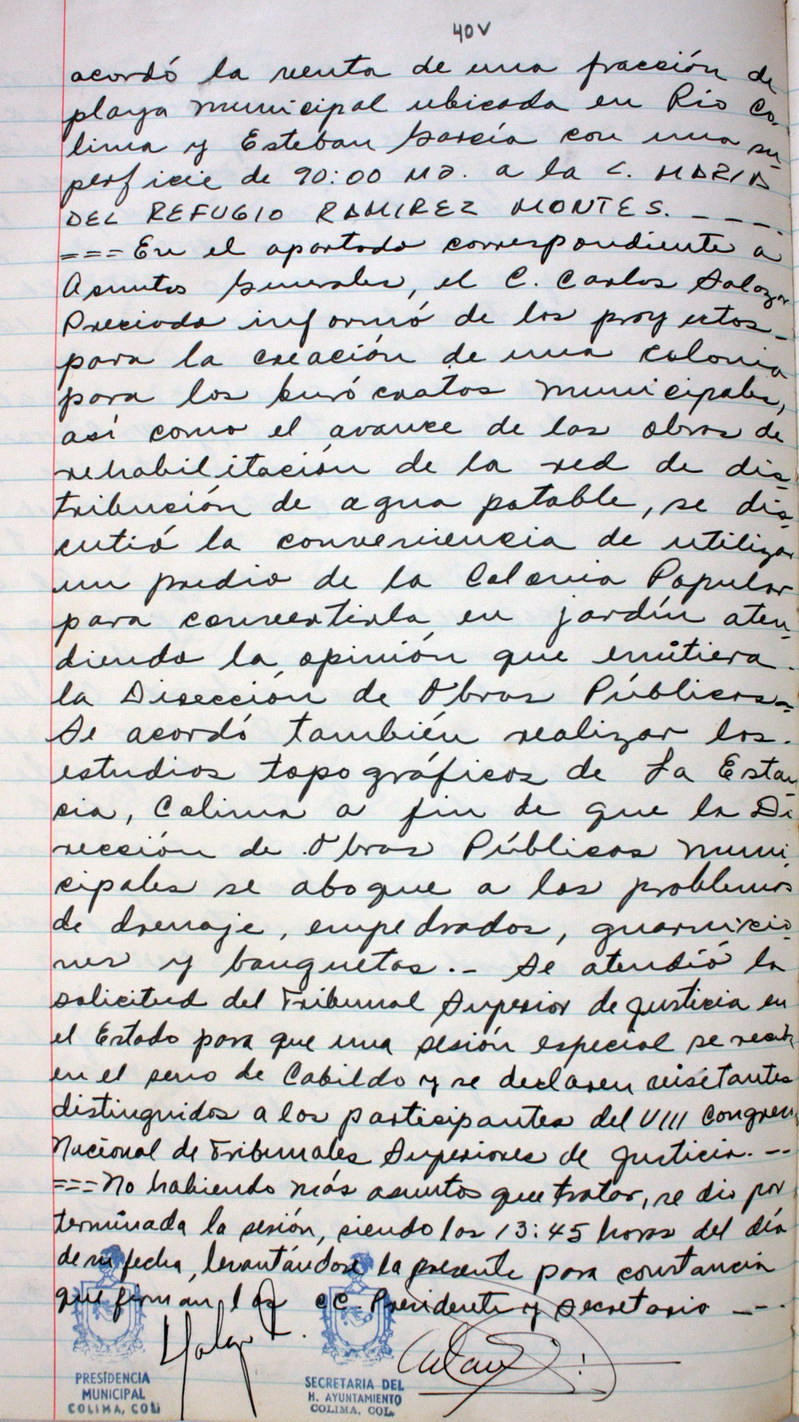 40V
acordó la venta de una fracción de
playa municipal ubicada en Río Co-
lima y Esteban García con una su-
perficie de 90:00 M2. a la C. MARIA
DEL REFUGIO RAMIREZ MONTES. _ _ _ _
=== En el apartado correspondiente a
Asuntos Generales, el C. Carlos Salazar
Preciado informó de los proyectos-
para la creación de una colonia
para los burócratas municipales,
así como el avance de las obras de
rehabilitación de la red de dis-
tribución de agua potable, se dis-
cutió la conveniencia de utilizar
un predio de la Colonia Popular
para convertirla en jardín aten-
diendo la opinión que emitiera-
la Dirección de Obras Públicas-
Se acordó también realizar los-
estudios topográficos de La Estan
cia, Colima a fin de que la Di
rección de Obras Públicas Muni
cipales se aboque a los problemas
de drenaje, empedrados, guarnicio-
nes y banquetas.- Se atendió la
solicitud del Tribunal Superior de Justicia en
el Estado para que una sesión especial se reciba
en el seno de Cabildo y se declaren visitantes
distinguidos a los participantes del VIII Congreso
Nacional de Tribunales Superiores de Justicia. --
=== No habiendo más asuntos que tratar, se dio por
terminada la sesión, siendo las 13:45 horas del día
de su fecha, levantándose la presente para constancia
que firman los CC. Presidente y Secretario _ _ .
PRESIDENCIA
MUNICIPAL
COLIMA, COL.
SECRETARIA DEL
H. AYUNTAMIENTO
COLIMA, COL.